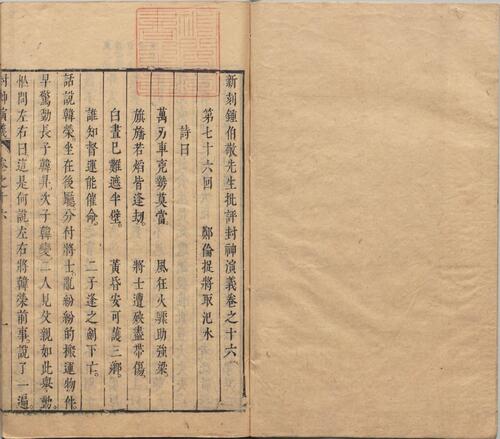 新刻鍾伯敬先生批評封神演義卷之十六
第七十六回 鄭倫捉將取汜水
詩曰
萬刃車兇勢莫當 風狂火驟助強梁
旗旛若焰皆逢刼 將士遭殃盡帶傷
白晝已難遮半壁 黃昏安可護三鄉
誰知督運能催命 二子逢之劍下亡
話說韓榮坐在後廳分付將士亂紛紛的搬運物件
早驚動長子韓昇次子韓變二人見父親如此舉動
忙問左右曰這是何說左右將韓榮前事說了一遍
封神演義 卷之十六 一